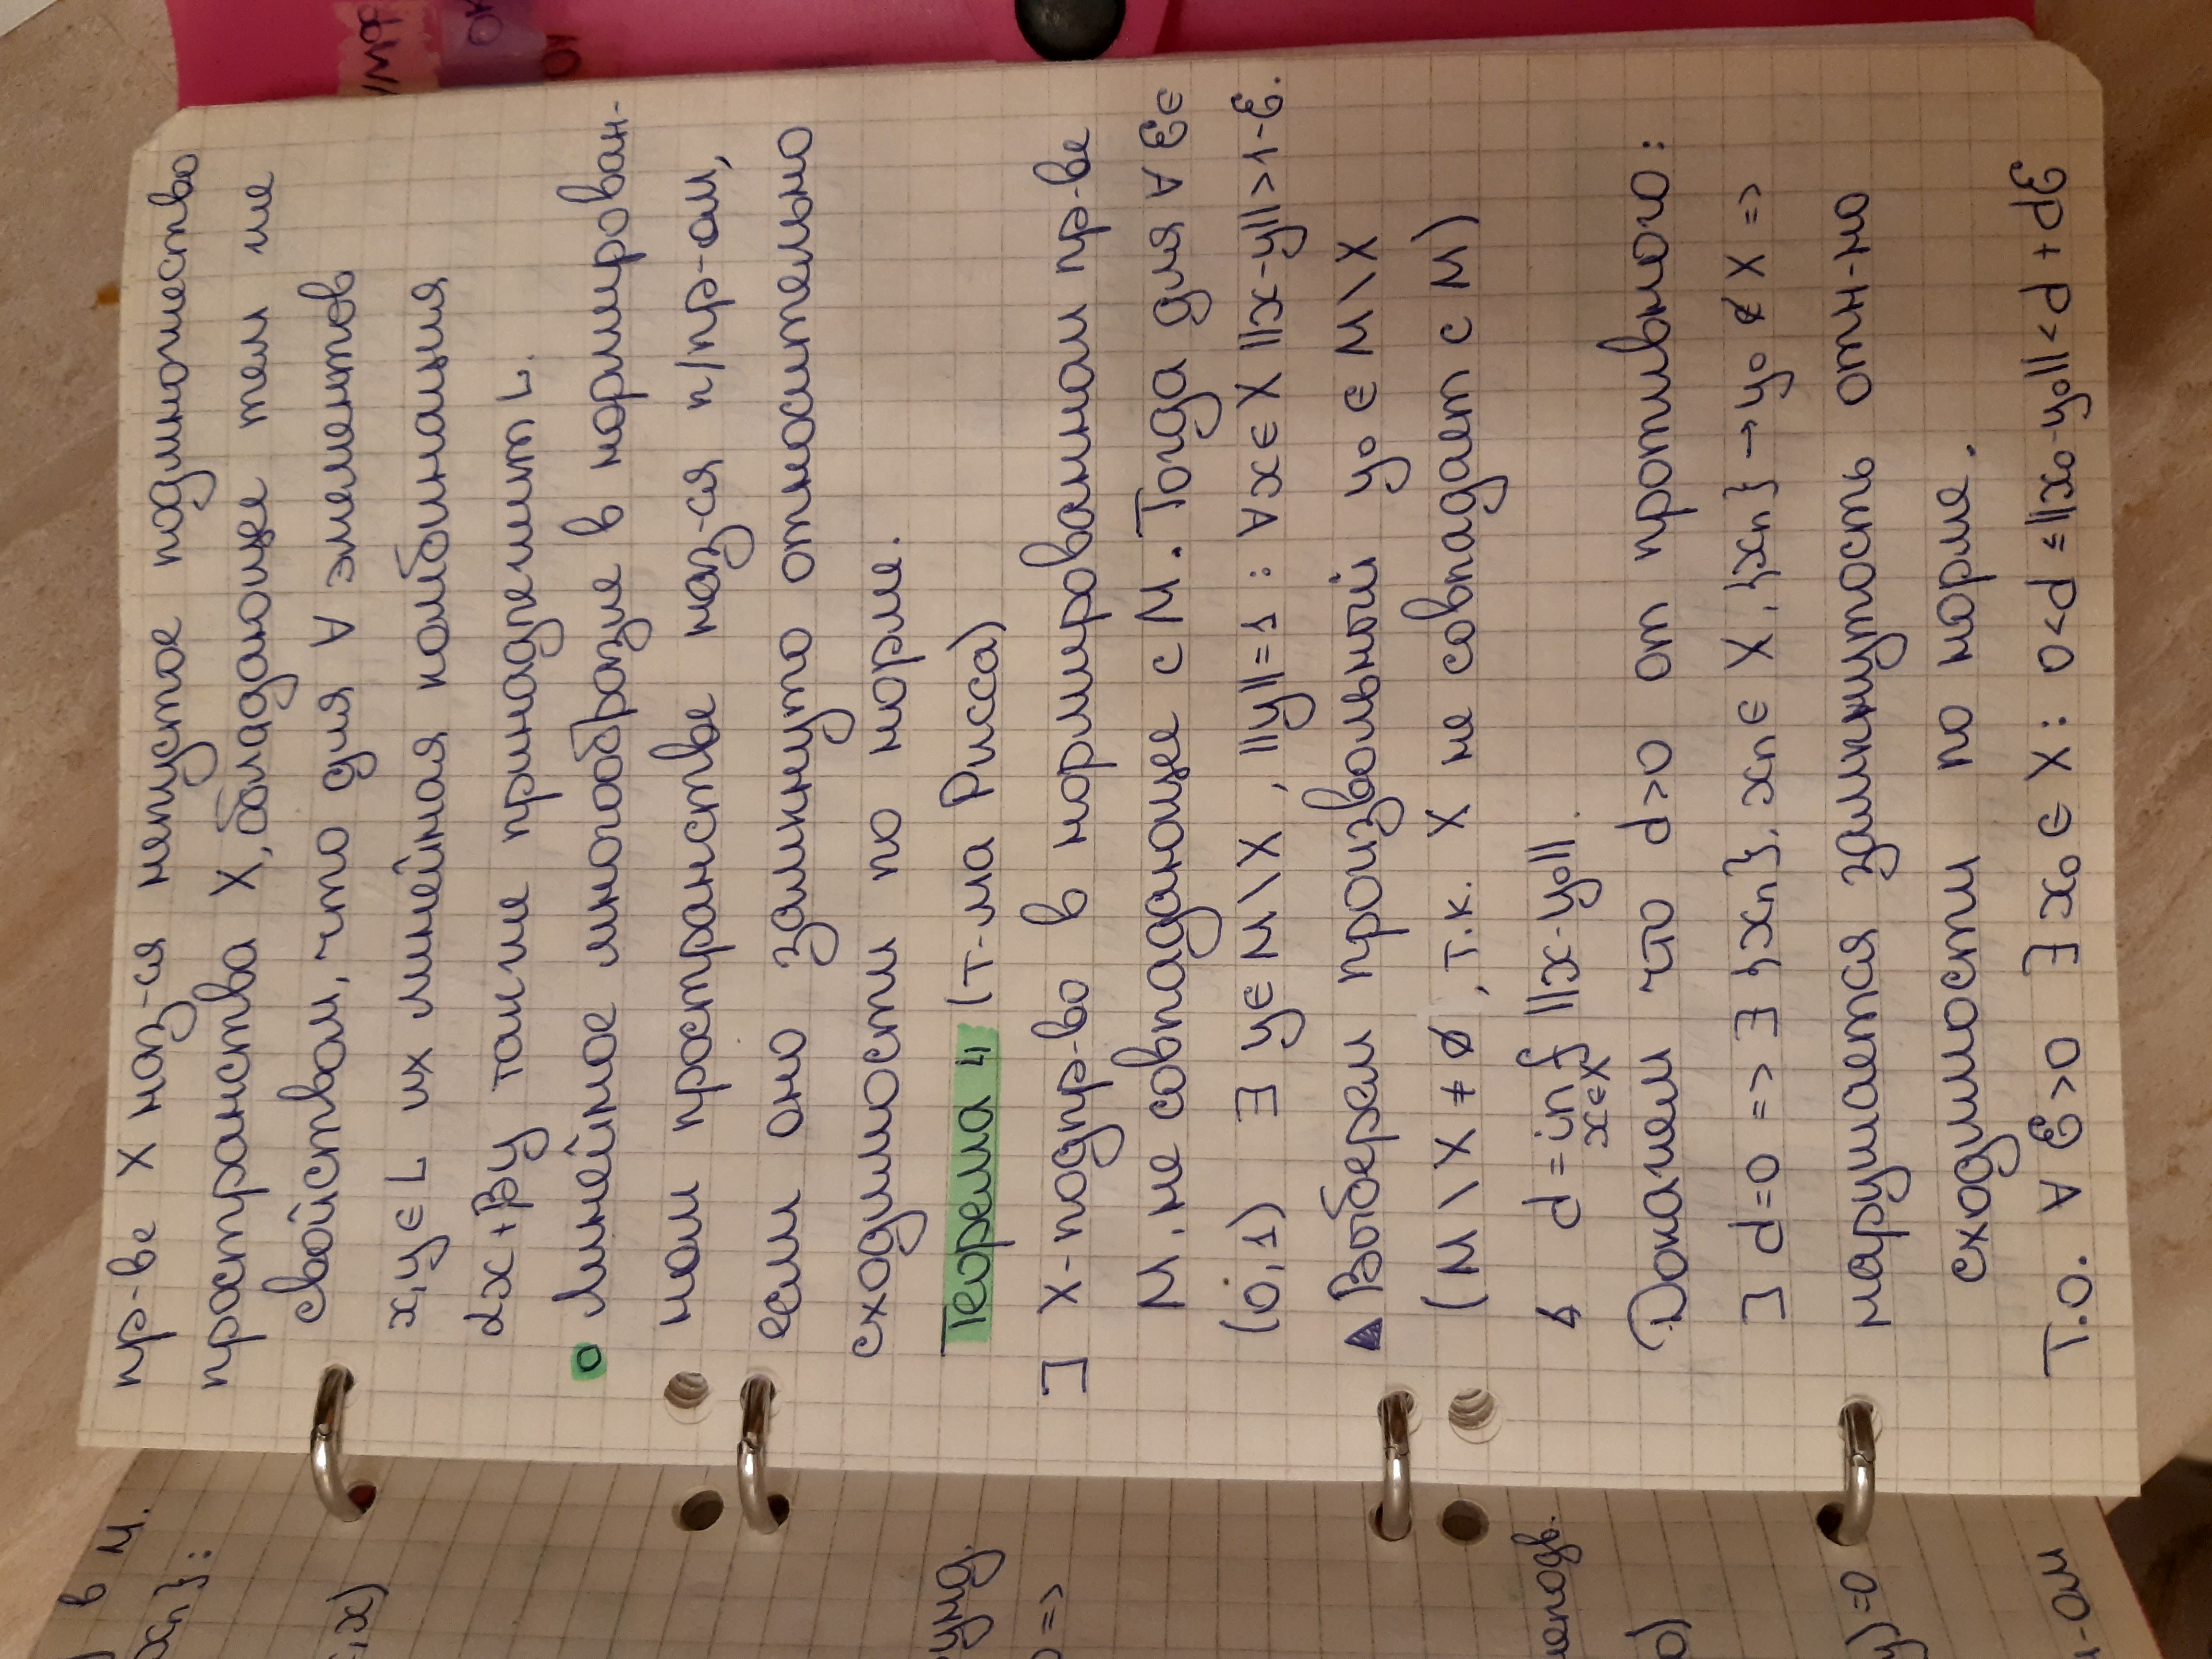 пр-ве X наз-ся непустое подмножество
пространства X, обладающее тем же
свойством, что для ∀ элементов
x, y ∈ L их линейная комбинация
αx + βy также принадлежит L.
линейное многообразие в нормирован-
ном пространстве наз-ся п/пр-ом,
если оно замкнуто относительно
сходимости по норме.
Теорема 4 (т-ма Рисса)
] X - подпр-во в нормированном пр-ве
M, не совпадающее с M. Тогда для ∀ ε ∈
(0,1) ∃ y ∈ M \ X, ||y|| = 1 : ∀ x ∈ X ||x-y|| > 1-ε.
▲ Выберем произвольный y₀ ∈ M \ X
(M \ X ≠ ∅, т.к. X не совпадает с M)
d = inf ||x-y₀||.
x∈X
Докажем что d>0 от противного:
] d=0 => ∃ {xn}, xn ∈ X, {xn} → y₀ ∉ X =>
нарушается замкнутость отн-но
сходимости по норме.
Т.о. ∀ ε>0 ∃ x₀ ∈ X : 0<d ≤ ||x₀-y₀|| < d + dε
в M.
xn}:
,x)
0 =>
y)=0
-ом